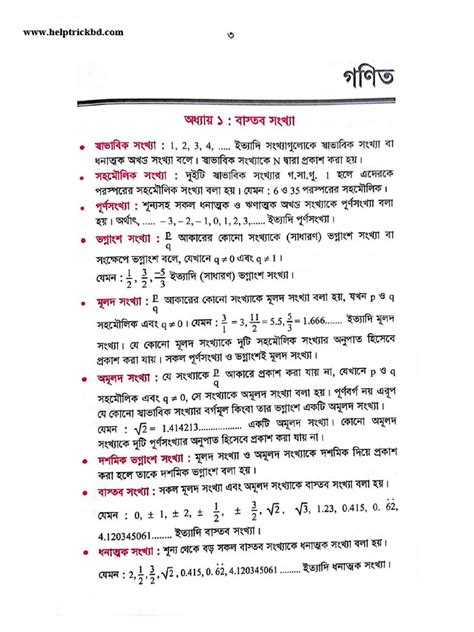 www.helptrickbd.com
৩
গণিত
অধ্যায় ১ : বাস্তব সংখ্যা
• স্বাভাবিক সংখ্যা : 1, 2, 3, 4, ..... ইত্যাদি সংখ্যাগুলোকে স্বাভাবিক সংখ্যা বা
ধনাত্মক অখণ্ড সংখ্যা বলে। স্বাভাবিক সংখ্যাকে N দ্বারা প্রকাশ করা হয়।
• সহমৌলিক সংখ্যা : দুইটি স্বাভাবিক সংখ্যার গ.সা.গু. 1 হলে এদেরকে
পরস্পরের সহমৌলিক সংখ্যা বলা হয়। যেমন : 6 ও 35 পরস্পরের সহমৌলিক।
• পূর্ণসংখ্যা : শূন্যসহ সকল ধনাত্মক ও ঋণাত্মক অখণ্ড সংখ্যাকে পূর্ণসংখ্যা বলা
হয়। অর্থাৎ, ..... – 3, – 2, – 1, 0, 1, 2, 3,...... ইত্যাদি পূর্ণসংখ্যা।
• ভগ্নাংশ সংখ্যা : p/q আকারের কোনো সংখ্যাকে (সাধারণ) ভগ্নাংশ সংখ্যা বা
সংক্ষেপে ভগ্নাংশ বলে, যেখানে q ≠ 0 এবং q ≠ 1।
যেমন : 1/2, 3/2, -5/3 ইত্যাদি (সাধারণ) ভগ্নাংশ সংখ্যা।
• মূলদ সংখ্যা : p/q আকারের কোনো সংখ্যাকে মূলদ সংখ্যা বলা হয়, যখন p ও q
সহমৌলিক এবং q ≠ 0। যেমন : 3/1 = 3, 11/2 = 5.5, 5/3 = 1.666...... ইত্যাদি মূলদ
সংখ্যা। যে কোনো মূলদ সংখ্যাকে দুটি সহমৌলিক সংখ্যার অনুপাত হিসেবে
প্রকাশ করা যায়। সকল পূর্ণসংখ্যা ও ভগ্নাংশই মূলদ সংখ্যা।
• অমূলদ সংখ্যা : যে সংখ্যাকে p/q আকারে প্রকাশ করা যায় না, যেখানে p ও q
সহমৌলিক এবং q ≠ 0, সে সংখ্যাকে অমূলদ সংখ্যা বলা হয়। পূর্ণবর্গ নয় এরূপ
যে কোনো স্বাভাবিক সংখ্যার বর্গমূল কিংবা তার ভগ্নাংশ একটি অমূলদ সংখ্যা।
যেমন : √2 = 1.414213............... একটি অমূলদ সংখ্যা। কোনো অমূলদ
সংখ্যাকে দুটি পূর্ণসংখ্যার অনুপাত হিসেবে প্রকাশ করা যায় না।
• দশমিক ভগ্নাংশ সংখ্যা : মূলদ সংখ্যা ও অমূলদ সংখ্যাকে দশমিক দিয়ে প্রকাশ
করা হলে তাকে দশমিক ভগ্নাংশ বলা হয়।
• বাস্তব সংখ্যা : সকল মূলদ সংখ্যা এবং অমূলদ সংখ্যাকে বাস্তব সংখ্যা বলা হয়।
যেমন : 0, ± 1, ± 2, ± 1/2, ± 3/2, √2, √3, 1.23, 0.415, 0. 6̇2̇,
4.120345061........ ইত্যাদি বাস্তব সংখ্যা।
• ধনাত্মক সংখ্যা : শূন্য থেকে বড় সকল বাস্তব সংখ্যাকে ধনাত্মক সংখ্যা বলা হয়।
যেমন : 2, 1/2, 3/2, √2, 0.415, 0. 6̇2̇, 4.120345061 ..... ইত্যাদি ধনাত্মক সংখ্যা।